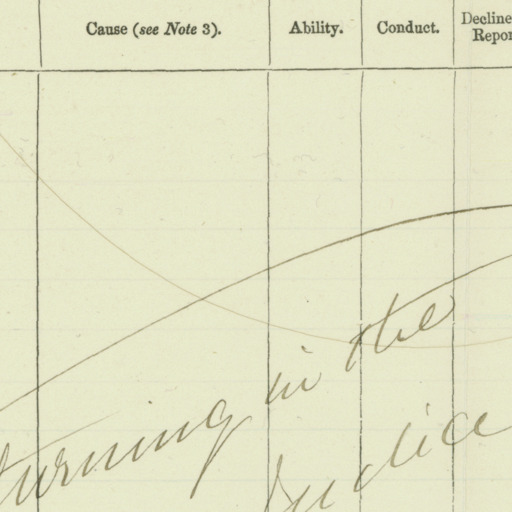 Cause (see Note 3).
Ability.
Conduct.
Decline
Repor
turning in the